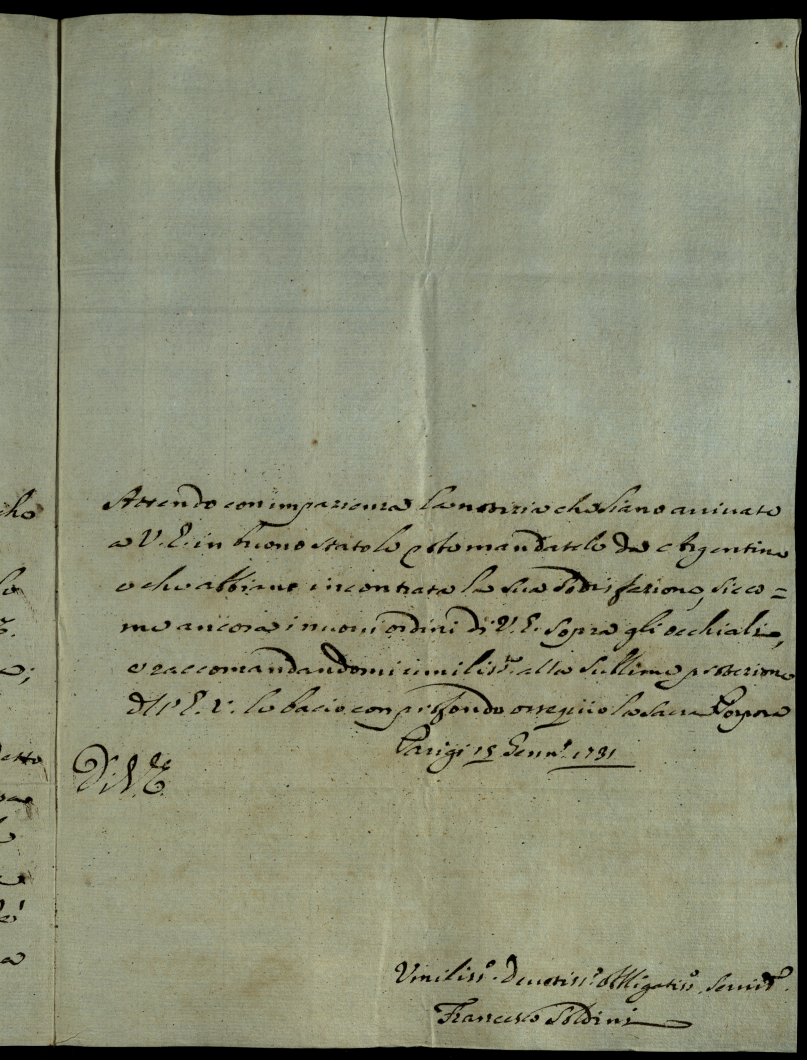 che
Attendo con impazienza la notizia che siano arrivate
a V. E. in buono stato le mandatele da Argentina
e che abbiano incontrata la sua sodisfazione, sicco=
me ancora i nuovi ordini di V. E. sopra gli occhiali,
e raccomandandomi umiliss.e alla sublime protezione
dell' E. V. le bacio con profondo ossequio la sacra Porpora
Parigi 15 Genn.o 1731
Di V. E.
Umiliss.o Devotiss.o Obbligatis.o Servit.e
Francesco Soldini